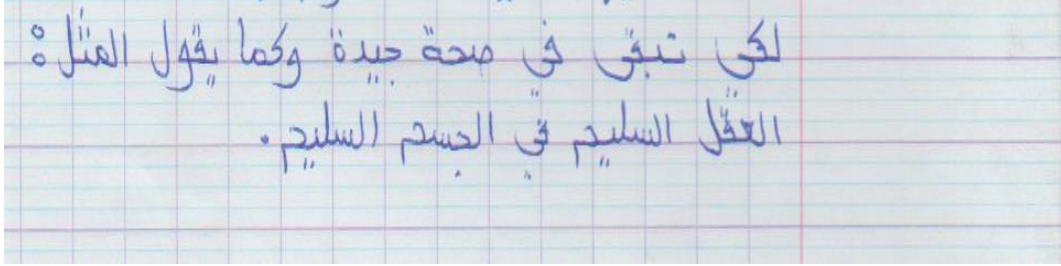 لكي تبقى في صحة جيدة وكما يقول المثل:
العقل السليم في الجسم السليم.